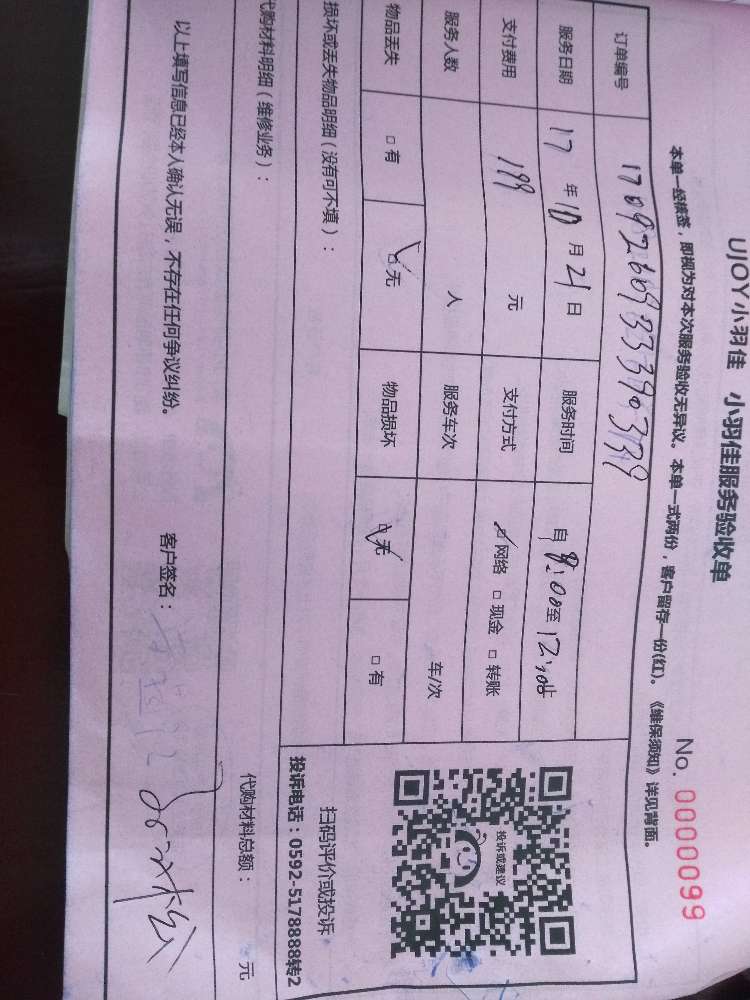 UJOY小羽佳 小羽佳服务验收单
No. 0000099
本单一经横签，即视为对本次服务验收无异议。本单一式两份，客户留存一份(红)。《维保须知》详见背面。
订单编号
服务日期 17 年 10 月 21 日 服务时间 自 8:00 至 12:00 止
支付费用 199 元 支付方式 网络 现金 转账
服务人数 人 服务车次 车/次
物品丢失 有 无 物品损坏 无 有
损坏或丢失物品明细（没有可不填）：
投诉或建议
扫码评价或投诉
投诉电话：0592-5178888转2
代购材料明细（维修业务）：
代购材料总额： 元
以上填写信息已经本人确认无误，不存在任何争议纠纷。 客户签名：